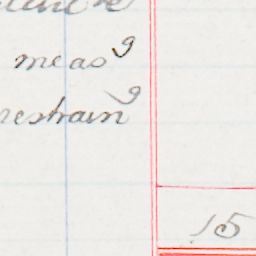 meas g
restrain g
15